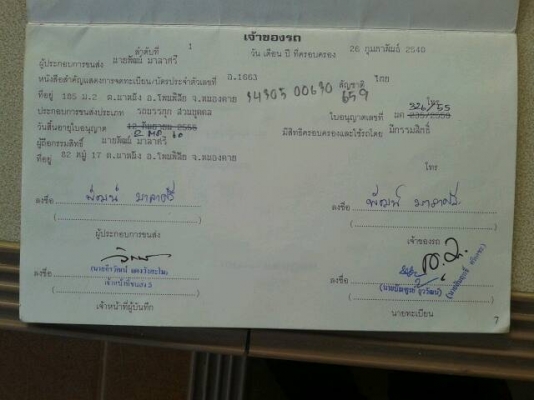 เจ้าของรถ
ลำดับที่ 1 วัน เดือน ปี ที่ครอบครอง 26 กุมภาพันธ์ 2540
ผู้ประกอบการขนส่ง นายพัฒน์ มาลาศรี
หนังสือสำคัญแสดงการจดทะเบียน/บัตรประจำตัวเลขที่ ฉ.1663 สัญชาติ ไทย
ที่อยู่ 185 ม.2 อ.โพนพิสัย จ.หนองคาย 34305 00630 659
ประกอบการขนส่งประเภท รถบรรทุก ส่วนบุคคล ใบอนุญาตเลขที่ นค 326/55
วันสิ้นอายุใบอนุญาต 2555 มีสิทธิครอบครองและใช้รถโดย มีกรรมสิทธิ์
ผู้ถือกรรมสิทธิ์ นายพัฒน์ มาลาศรี
ที่อยู่ 82 หมู่ 17 อ.โพนพิสัย จ.หนองคาย
โทร
ลงชื่อ พัฒน์ มาลาศรี
ผู้ประกอบการขนส่ง
ลงชื่อ พัฒน์ มาลาศรี
เจ้าของรถ
ลงชื่อ
เจ้าหน้าที่ผู้บันทึก
ลงชื่อ
นายทะเบียน
7